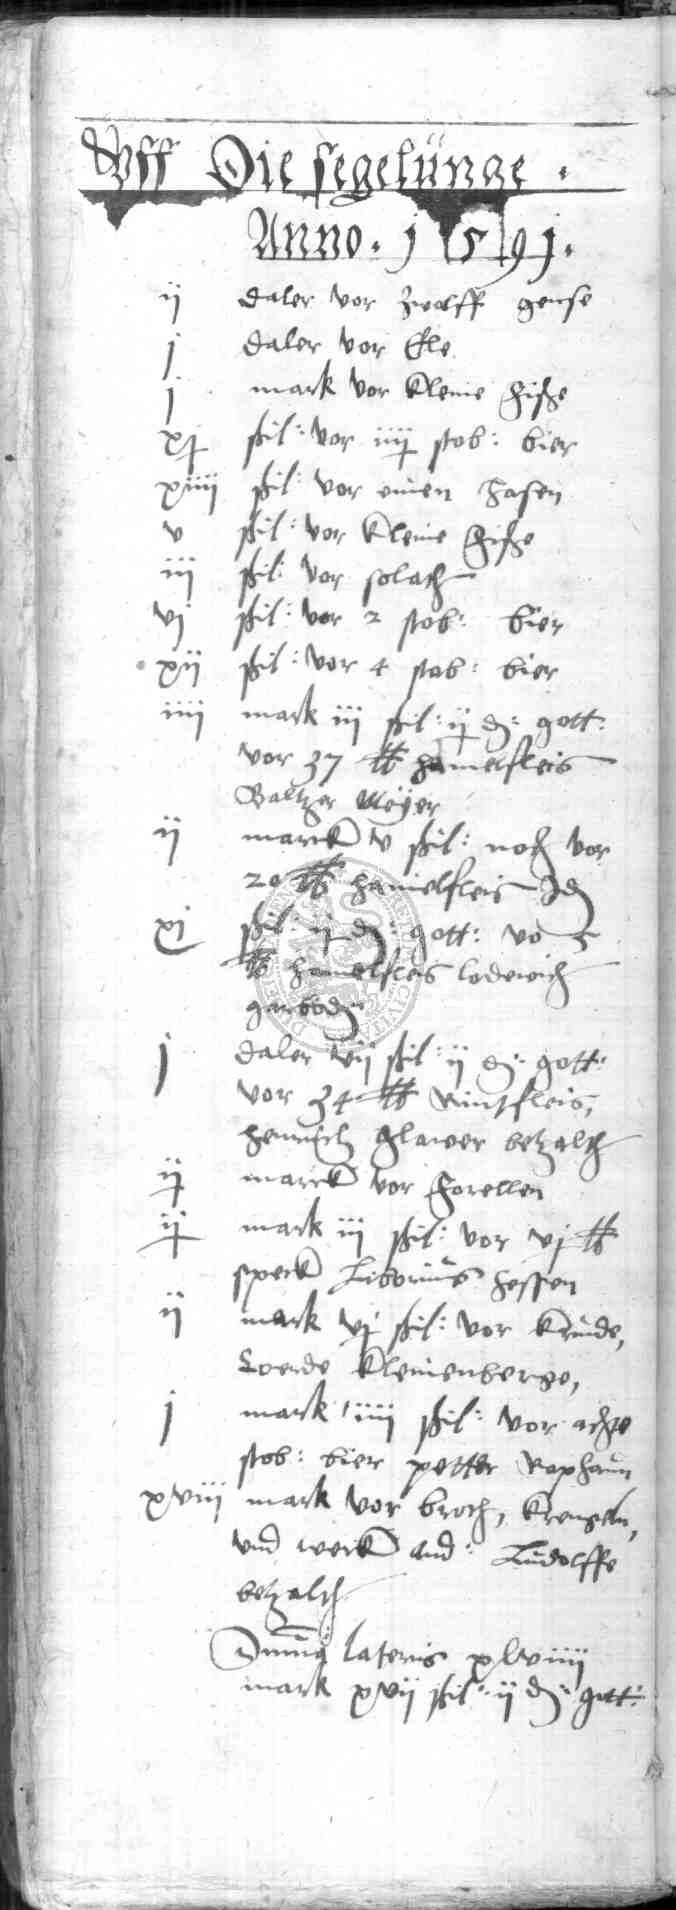 Uff Die segelunge .
Anno . 1591 .
ij daler vor zwolff gense
j daler vor Ele
j mark vor kleine fische
xj schil: vor iiij stob: bier
xiiij schil: vor einen hasen
v schil: vor kleine fische
iij schil: vor solath
vj schil: vor 2 stob: bier
xij schil: vor 4 stob: bier
iiij mark iij schil: ij d: gott:
vor 37 lb hamelfleis
Baltzer Meyer
ij marck v schil: noch vor
20 lb hamelfleis Id
xj schil: ij d: gott: vo 5
lb hamelfleis lodewich
j daler vij schil: ij d: gott:
vor 34 lb Rintfleis,
Henrich Glawer betzalth
ij marck vor forellen
ij mark iij schil: vor vj lb
speck Liborius Hessen
ij mark vj schil: vor krude,
Coerde Kleinenberge,
j mark iiij schil: vor achte
stob: bier petter Raphaun
xviij mark vor broth, krengeln,
und weck And: Ludolffe
betzalth
Summa lateris xlviiij
mark xvij schil: ij d: gott: